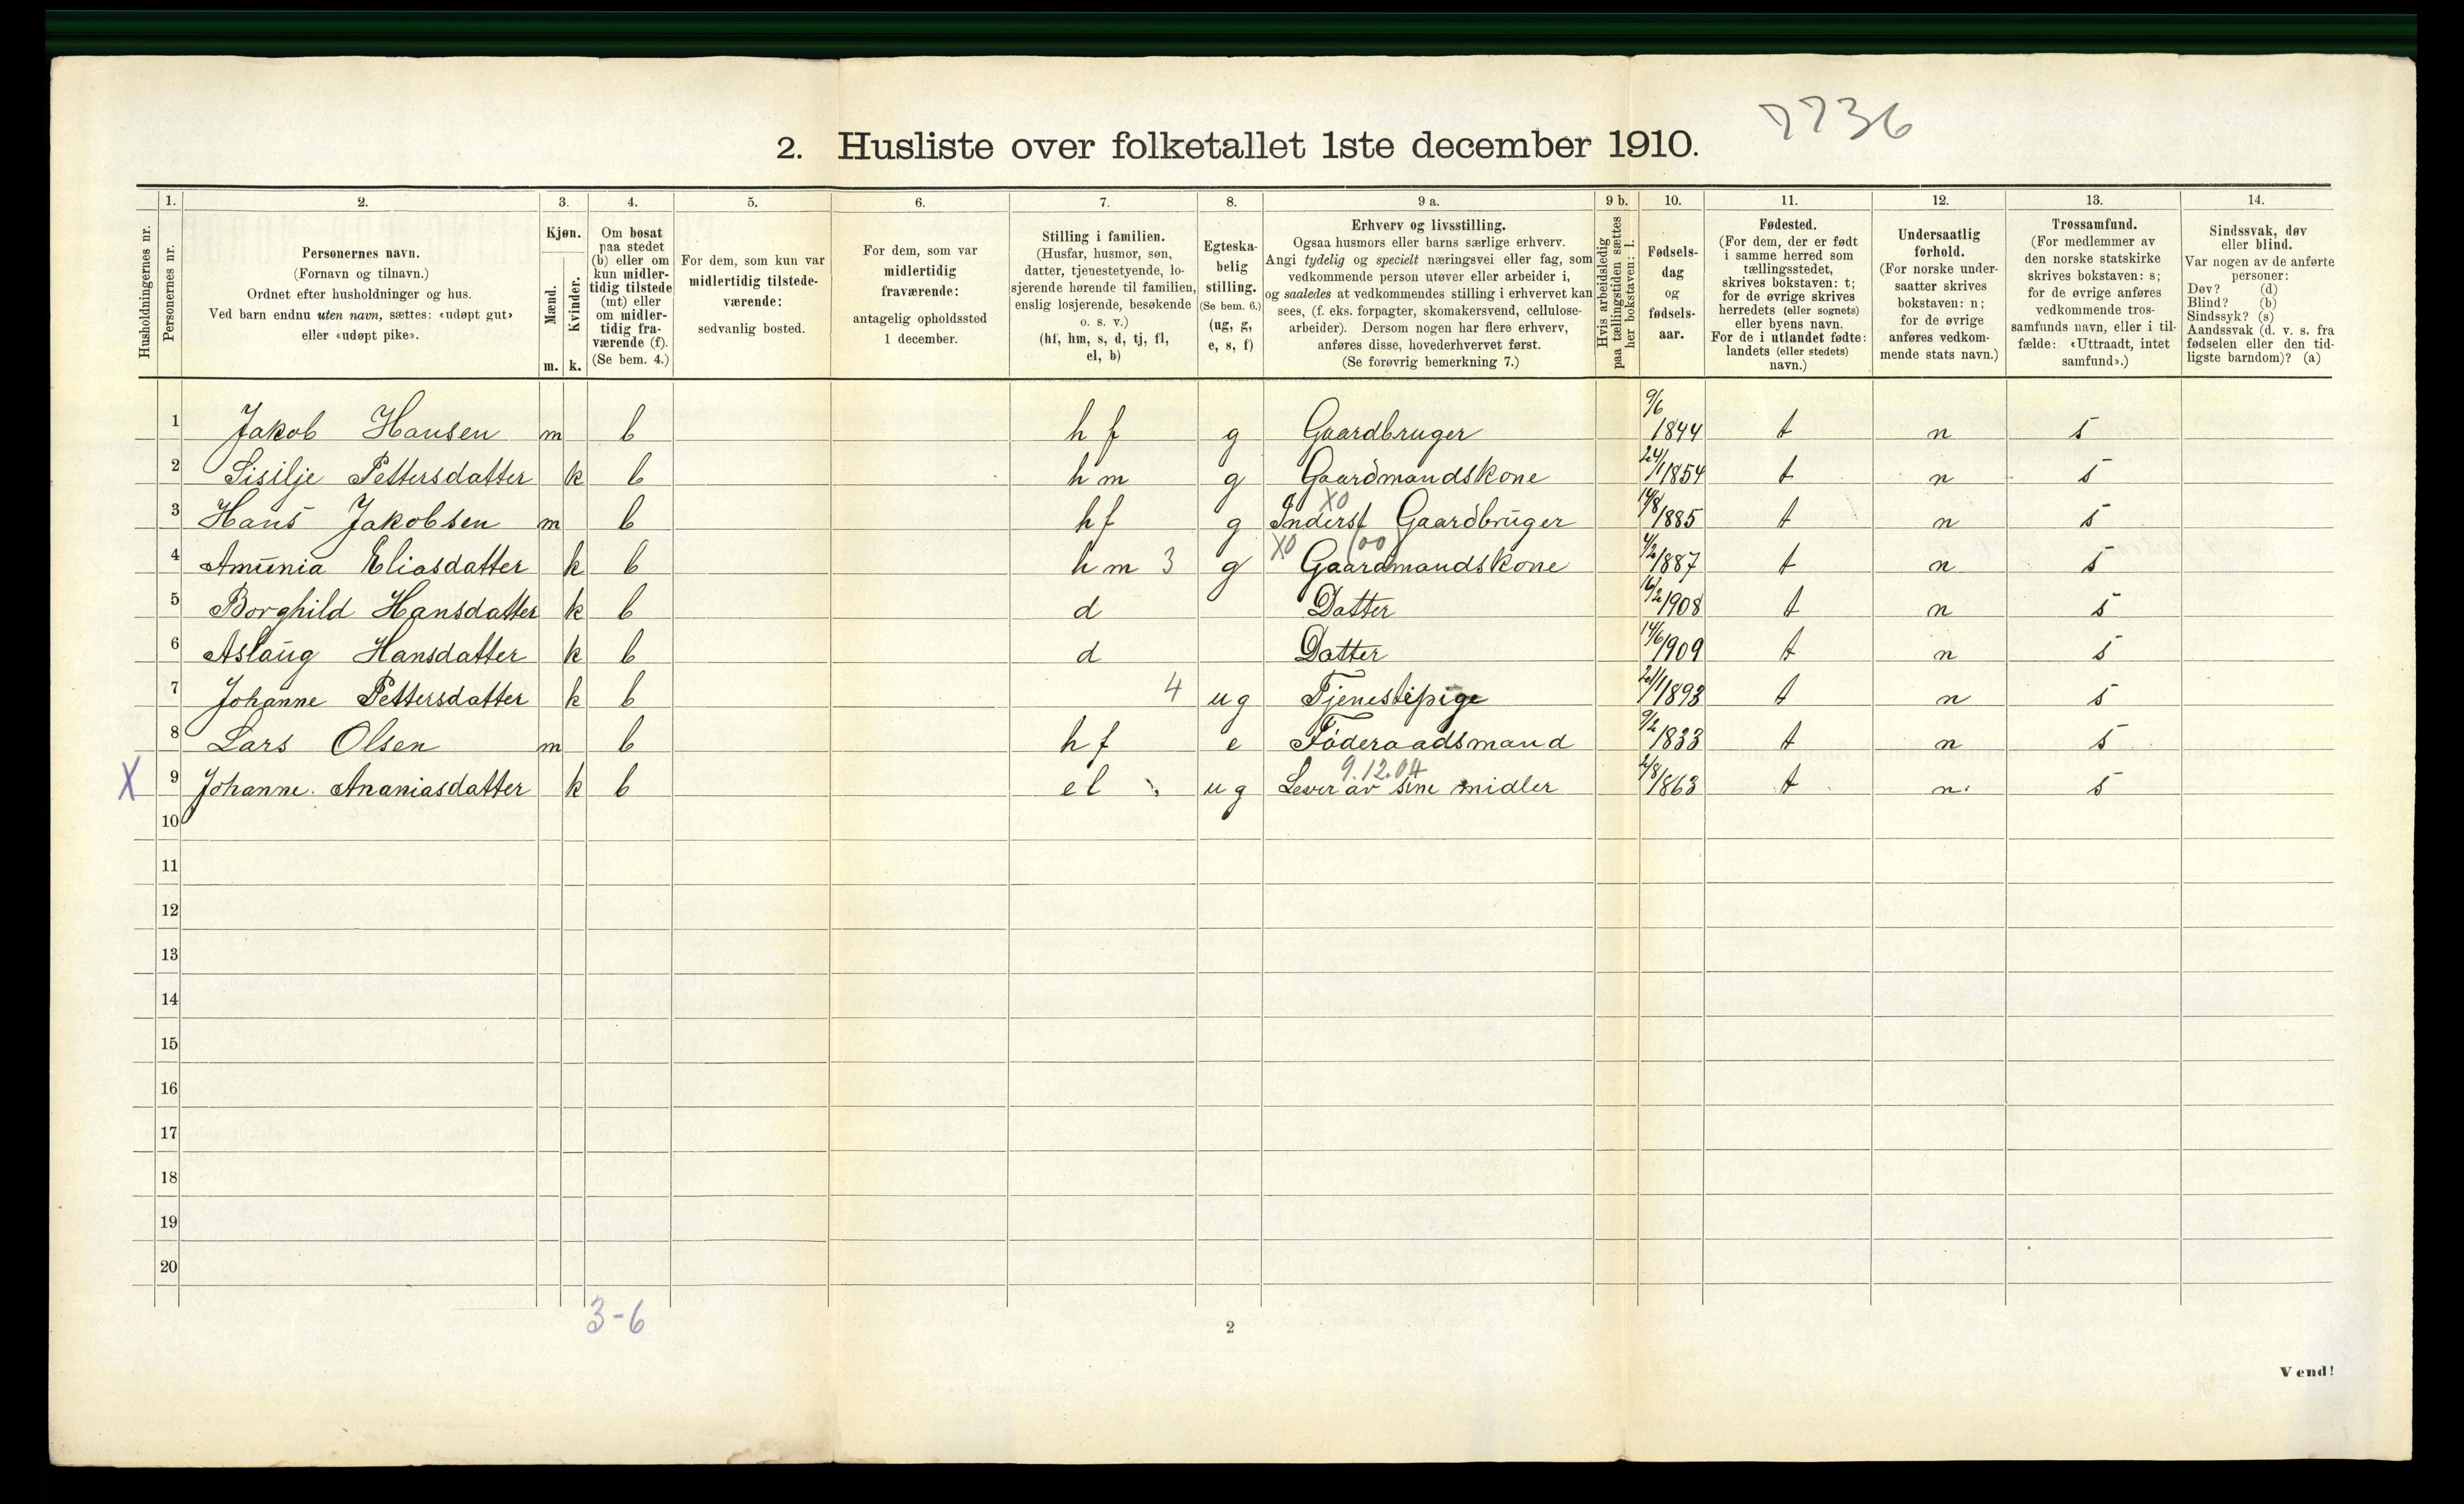 7736
2. Husliste over folketallet 1ste december 1910.
Husholdningernes nr.
1.
Personernes nr.
2.
Personernes navn.
(Fornavn og tilnavn.)
Ordnet efter husholdninger og hus.
Ved barn endnu uten navn, sættes: «udøpt gut»
eller «udøpt pike».
3.
Kjøn.
Mænd.
m.
Kvinder.
k.
4.
Om bosat
paa stedet
(b) eller om
kun midler-
tidig tilstede
(mt) eller
om midler-
tidig fra-
værende (f).
(Se bem. 4.)
5.
For dem, som kun var
midlertidig tilstede-
værende:
sedvanlig bosted.
6.
For dem, som var
midlertidig
fraværende:
antagelig opholdssted
1 december.
7.
Stilling i familien.
(Husfar, husmor, søn,
datter, tjenestetyende, lo-
sjerende hørende til familien,
enslig losjerende, besøkende
o. s. v.)
(hf, hm, s, d, tj, fl,
el, b)
8.
Egteska-
belig
stilling.
(Se bem. 6.)
(ug, g,
e, s, f)
9 a.
Erhverv og livsstilling.
Ogsaa husmors eller barns særlige erhverv.
Angi tydelig og specielt næringsvei eller fag, som
vedkommende person utøver eller arbeider i,
og saaledes at vedkommendes stilling i erhvervet kan
sees, (f. eks. forpagter, skomakersvend, cellulose-
arbeider). Dersom nogen har flere erhverv,
anføres disse, hovederhvervet først.
(Se forøvrig bemerkning 7.)
9 b.
Hvis arbeidsledig
paa tællingstiden sættes
her bokstaven: l.
10.
Fødsels-
dag
og
fødsels-
aar.
11.
Fødested.
(For dem, der er født
i samme herred som
tællingsstedet,
skrives bokstaven: t;
for de øvrige skrives
herredets (eller sognets)
eller byens navn.
For de i utlandet fødte:
landets (eller stedets)
navn.)
12.
Undersaatlig
forhold.
(For norske under-
saatter skrives
bokstaven: n;
for de øvrige
anføres vedkom-
mende stats navn.)
13.
Trossamfund.
(For medlemmer av
den norske statskirke
skrives bokstaven: s;
for de øvrige anføres
vedkommende tros-
samfunds navn, eller i til-
fælde: «Uttraadt, intet
samfund».)
14.
Sindssvak, døv
eller blind.
Var nogen av de anførte
personer:
Døv? (d)
Blind? (b)
Sindssyk? (s)
Aandssvak (d. v. s. fra
fødselen eller den tid-
ligste barndom)? (a)
1 Jakob Hansen m b hf g Gaardbruger 9/6 1844 t n s
2 Sisilje Pettersdatter k b hm g Gaardmandskone 24/1 1854 t n s
X0
3 Hans Jakobsen m b hf g Inderst Gaardbruger 14/8 1885 t n s
X0 (00)
4 Amunia Eliasdatter k b hm 3 g Gaardmandskone 4/2 1887 t n s
5 Borghild Hansdatter k b d Datter 16/2 1908 t n s
6 Aslaug Hansdatter k b d Datter 14/6 1909 t n s
7 Johanne Pettersdatter k b 4 ug Tjenestepige 1893 t n s
8 Lars Olsen m b hf e Föderaadsmand 9/2 1833 t n s
9.12.04
X 9 Johanne Ananiasdatter k b el ug Lever av sine midler 2/8 1863 t n s
10
11
12
13
14
15
16
17
18
19
20
3-6
2
Vend!